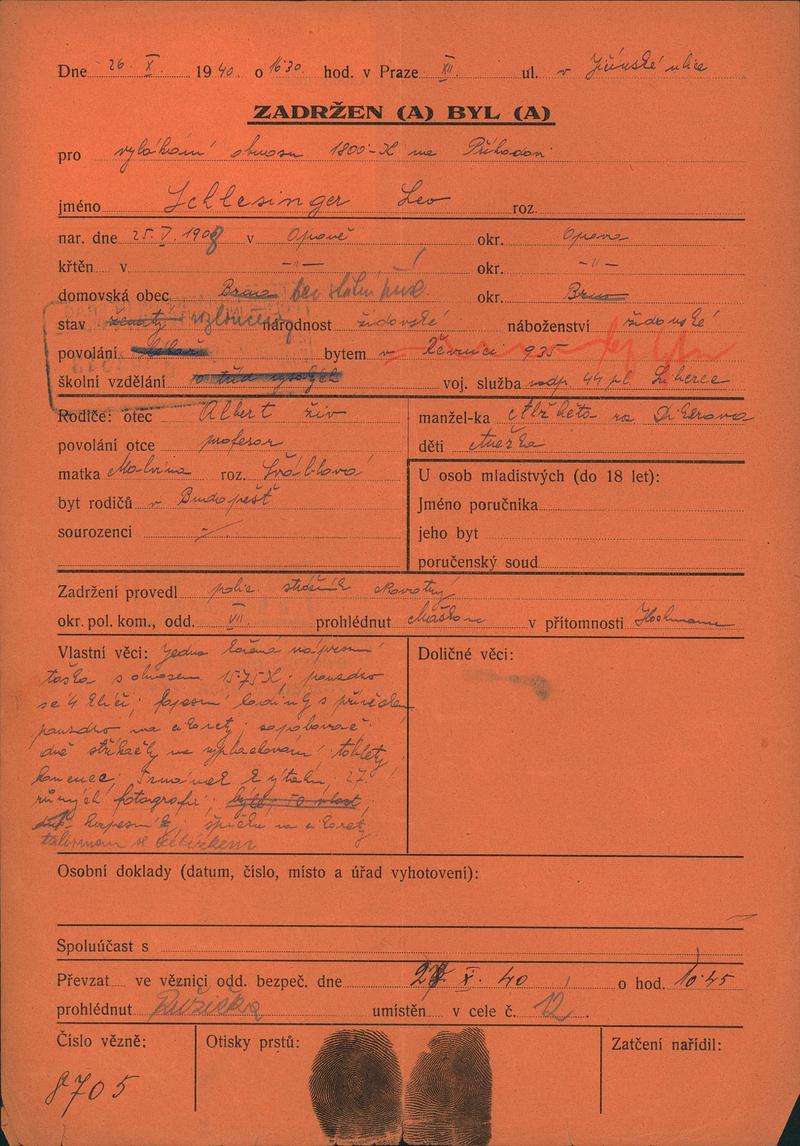 Dne 26 X. 1940 o 16'30 hod. v Praze XII. ul. v Jičínské ulice
ZADRŽEN (A) BYL (A)
pro vylákání obnosu 1800-K na
jméno Schlesinger Leo roz.
nar. dne 25. V. 1908 v Opavě okr. Opava
křtěn v -"- okr. -"-
domovská obec Brno bez státní přísl. okr. Brno
stav ženatý rozloučený národnost židovské náboženství židovské
povolání bytem v Řevnici 935
školní vzdělání voj. služba 44 pl. Liberec
Rodiče: otec Albert živ manžel-ka Alžběta
povolání otce profesor děti Anežka
matka Malvina roz.
byt rodičů v Budapešť U osob mladistvých (do 18 let):
Jméno poručníka
sourozenci jeho byt
poručenský soud
Zadržení provedl polic. strážník Novotný
okr. pol. kom., odd. VII. prohlédnut v přítomnosti
Vlastní věci: jedna kožená náprsní Doličné věci:
taška s obnosem 15·75K; pouzdro
se 4 klíči;
pouzdro na cigarety; zapalovač
dvě stříkačky na tablety
27
různých fotografií;
kapesník, špička na cigarety
talisman se
Osobní doklady (datum, číslo, místo a úřad vyhotovení):
Spoluúčast s
Převzat ve věznici odd. bezpeč. dne 27. X. 40 o hod. 10·45
prohlédnut Růžička umístěn v cele č. 12
Číslo vězně: Otisky prstů: Zatčení nařídil:
8705